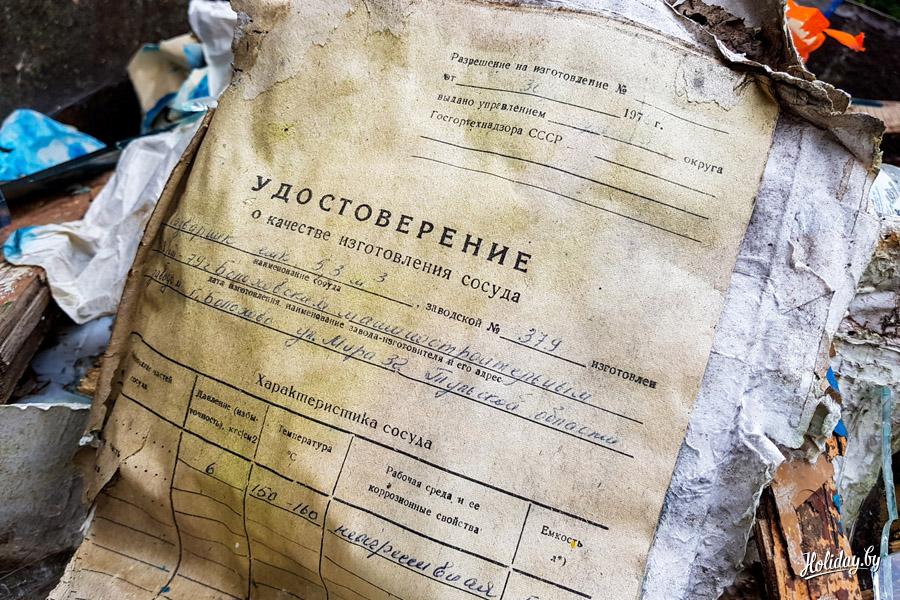 Разрешение на изготовление №
от 30 197 г.
выдано управлением
Госгортехнадзора СССР округа
УДОСТОВЕРЕНИЕ
о качестве изготовления сосуда
емк 5,3 м 3, заводской № 379 изготовлен
наименование сосуда
79г машиностроительным
дата изготовления, наименование завода-изготовителя и его адрес
ул. Мира 32 Тульской области
Характеристика сосуда
частей сосуда
Давление (избыточность), кгс/см2
Температура °С
Рабочая среда и ее коррозионные свойства
Емкость л*)
6
150 -160
Holiday.by